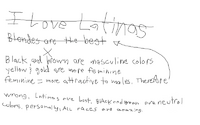 I Love Latinas
Blondes are the best
Black and brown are masculine colors
yellow & gold are more feminine
feminine = more attractive to males. Therefore
wrong. Latinas are hot, are neutral
colors, personality. All races are amazing.